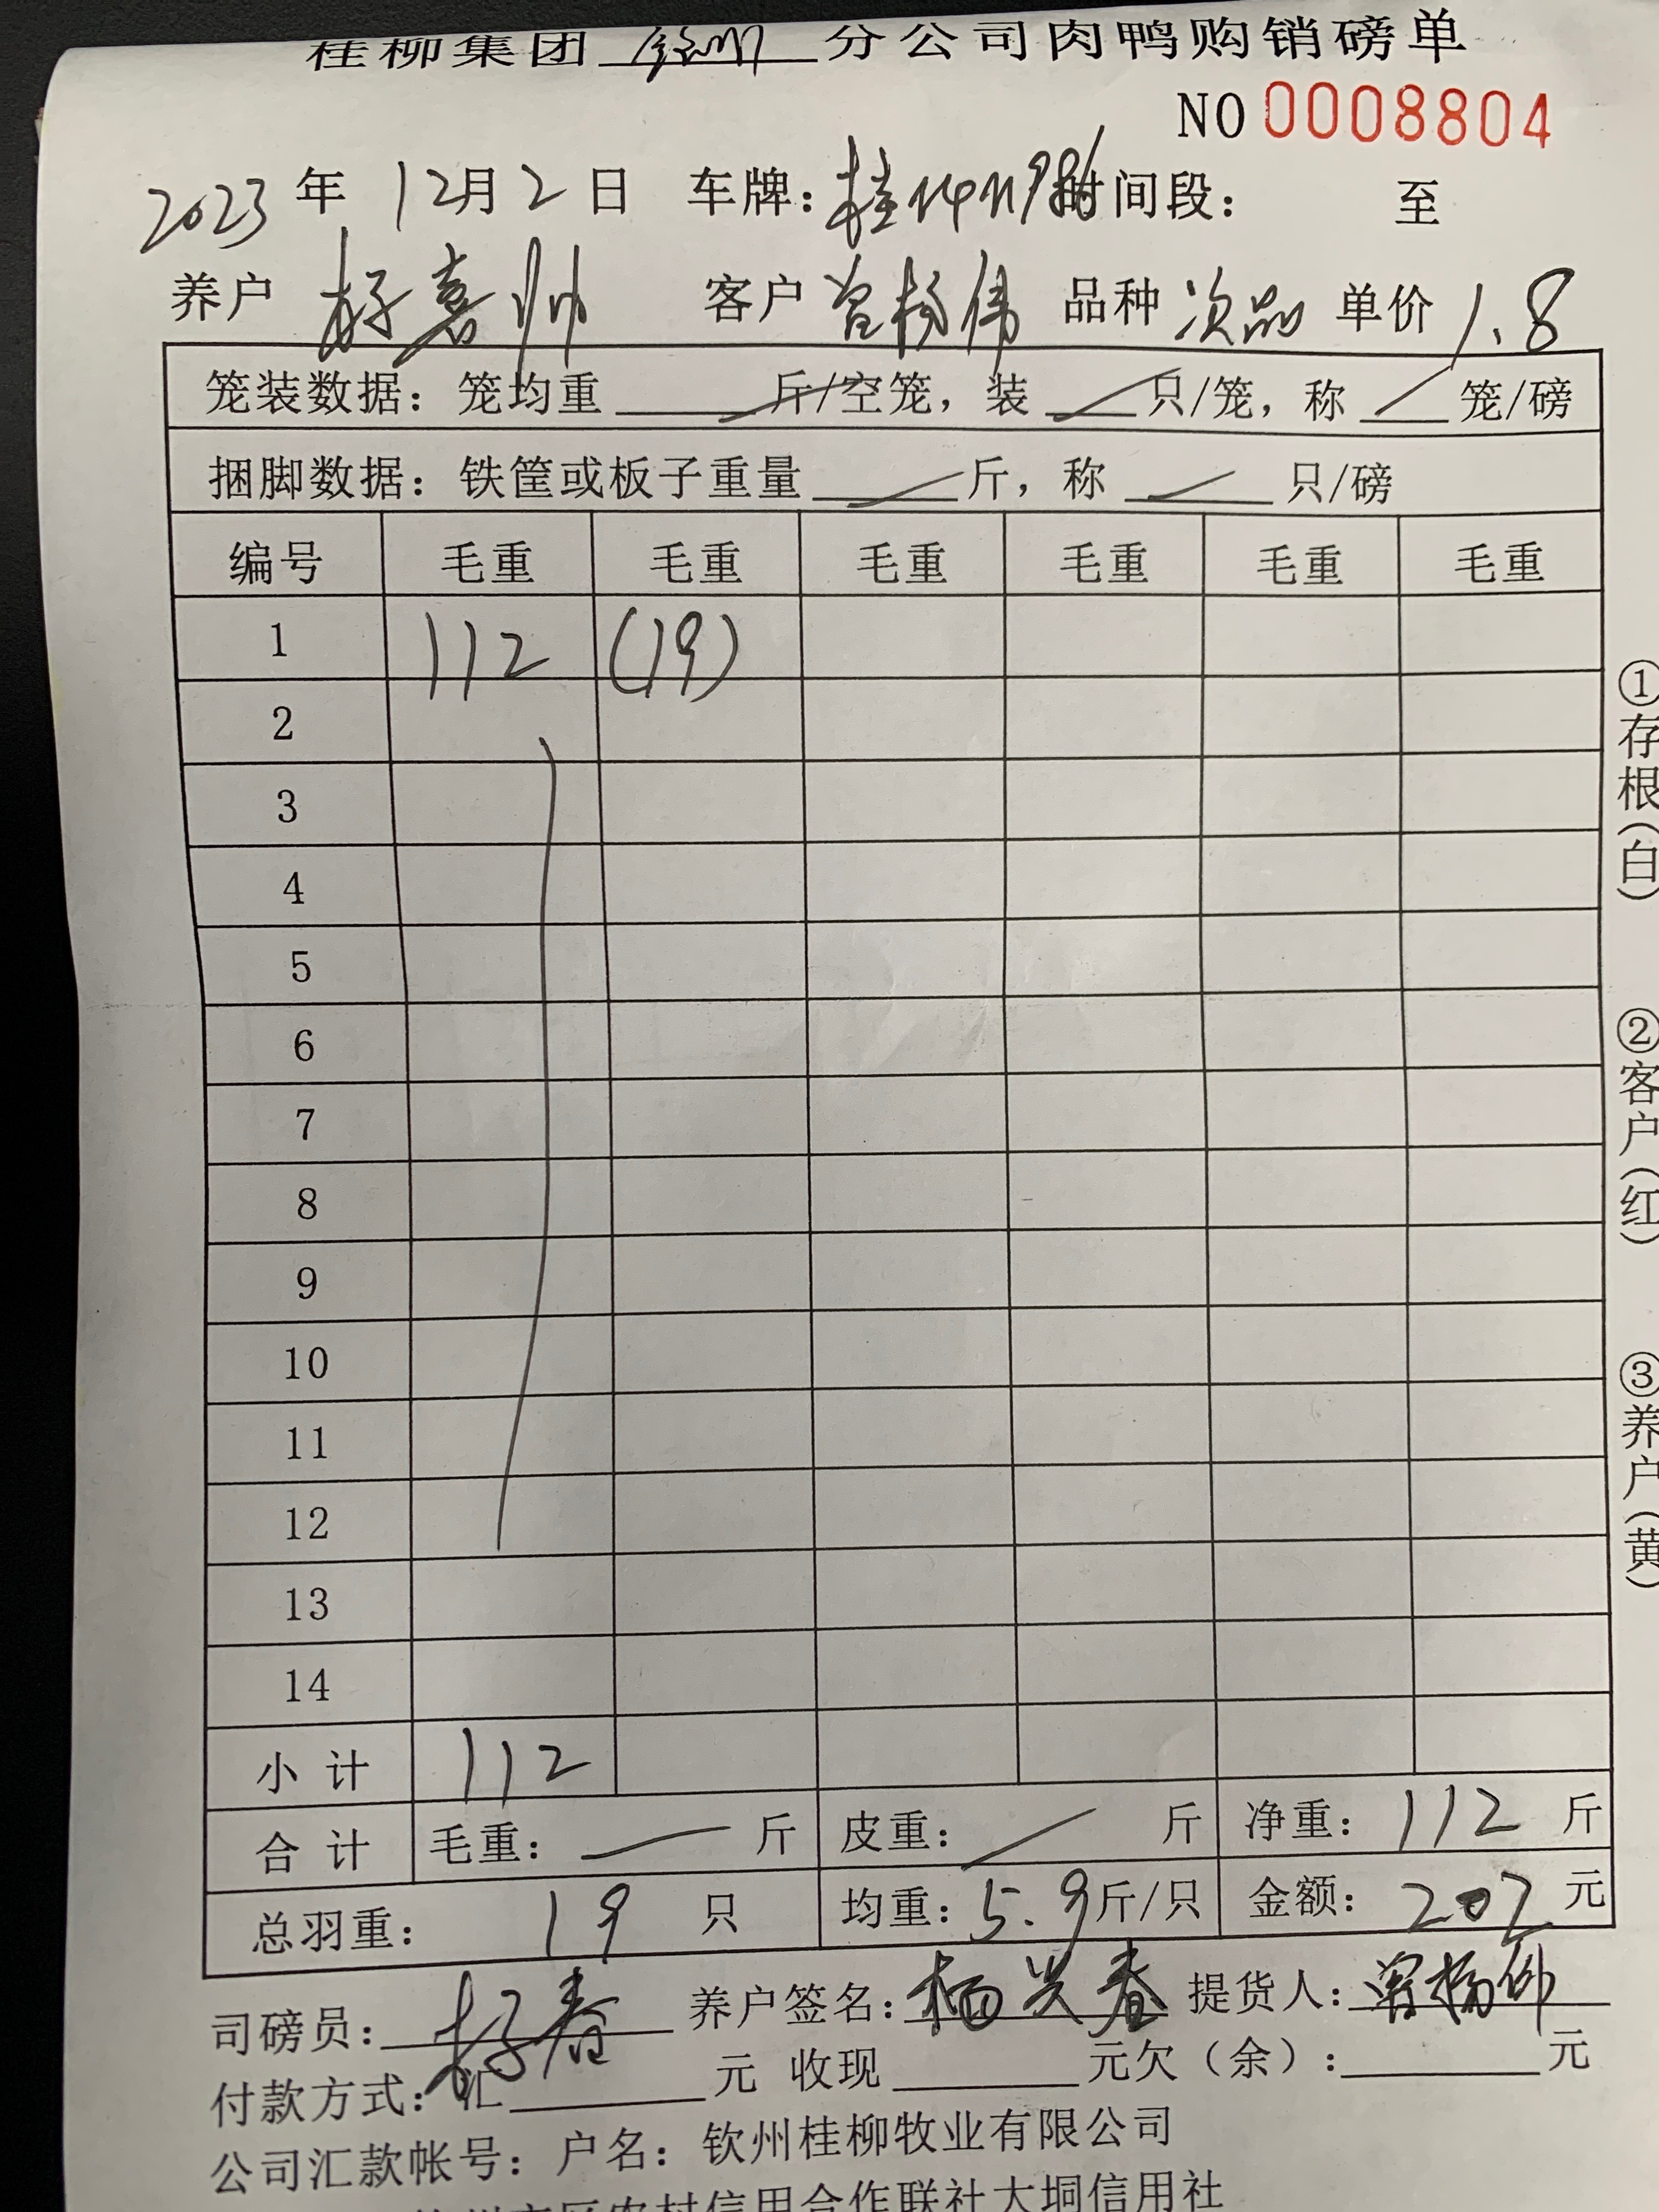 桂柳集团 钦州 分公司肉鸭购销磅单
NO 0008804
2023 年 12月 2 日 车牌: 桂 时间段: 至
养户 客户 曾杨伟 品种 次品 单价 1.8
笼装数据: 笼均重 斤/空笼, 装 只/笼, 称 笼/磅
捆脚数据: 铁筐或板子重量 斤, 称 只/磅
编号 毛重 毛重 毛重 毛重 毛重 毛重
1 112 (19)
2
3
4
5
6
7
8
9
10
11
12
13
14
小 计 112
合 计 毛重: 斤 皮重: 斤 净重: 112 斤
总羽重: 19 只 均重: 5.9 斤/只 金额: 202 元
司磅员: 养户签名: 杨兴春 提货人:
付款方式: 汇 元 收现 元欠(余): 元
公司汇款帐号: 户名: 钦州桂柳牧业有限公司
农村信用合作联社大垌信用社
①存根(白)
②客户(红)
③养户(黄)